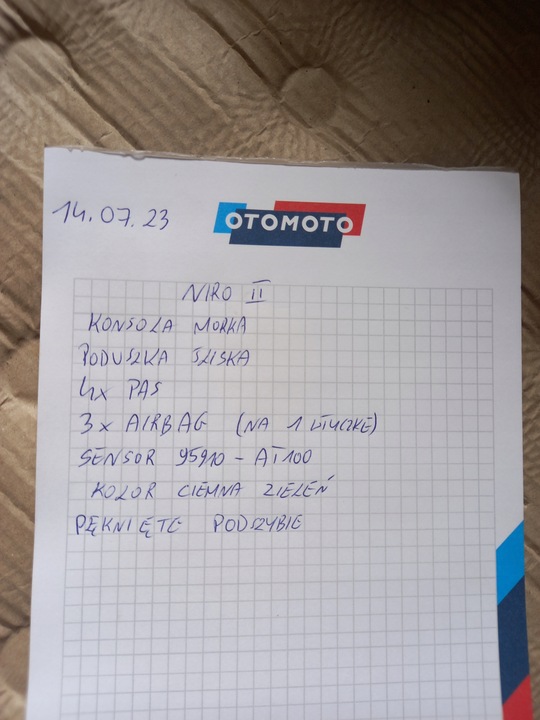 14.07.23
OTOMOTO
NIRO II
KONSOLA MOKKA
PODUSZKA ŚLISKA
4x PAS
3x AIRBAG (NA 1 WTYCZKĘ)
SENSOR 95910 - AT100
KOLOR CIEMNA ZIELEŃ
PĘKNIĘTE PODSZYBIE